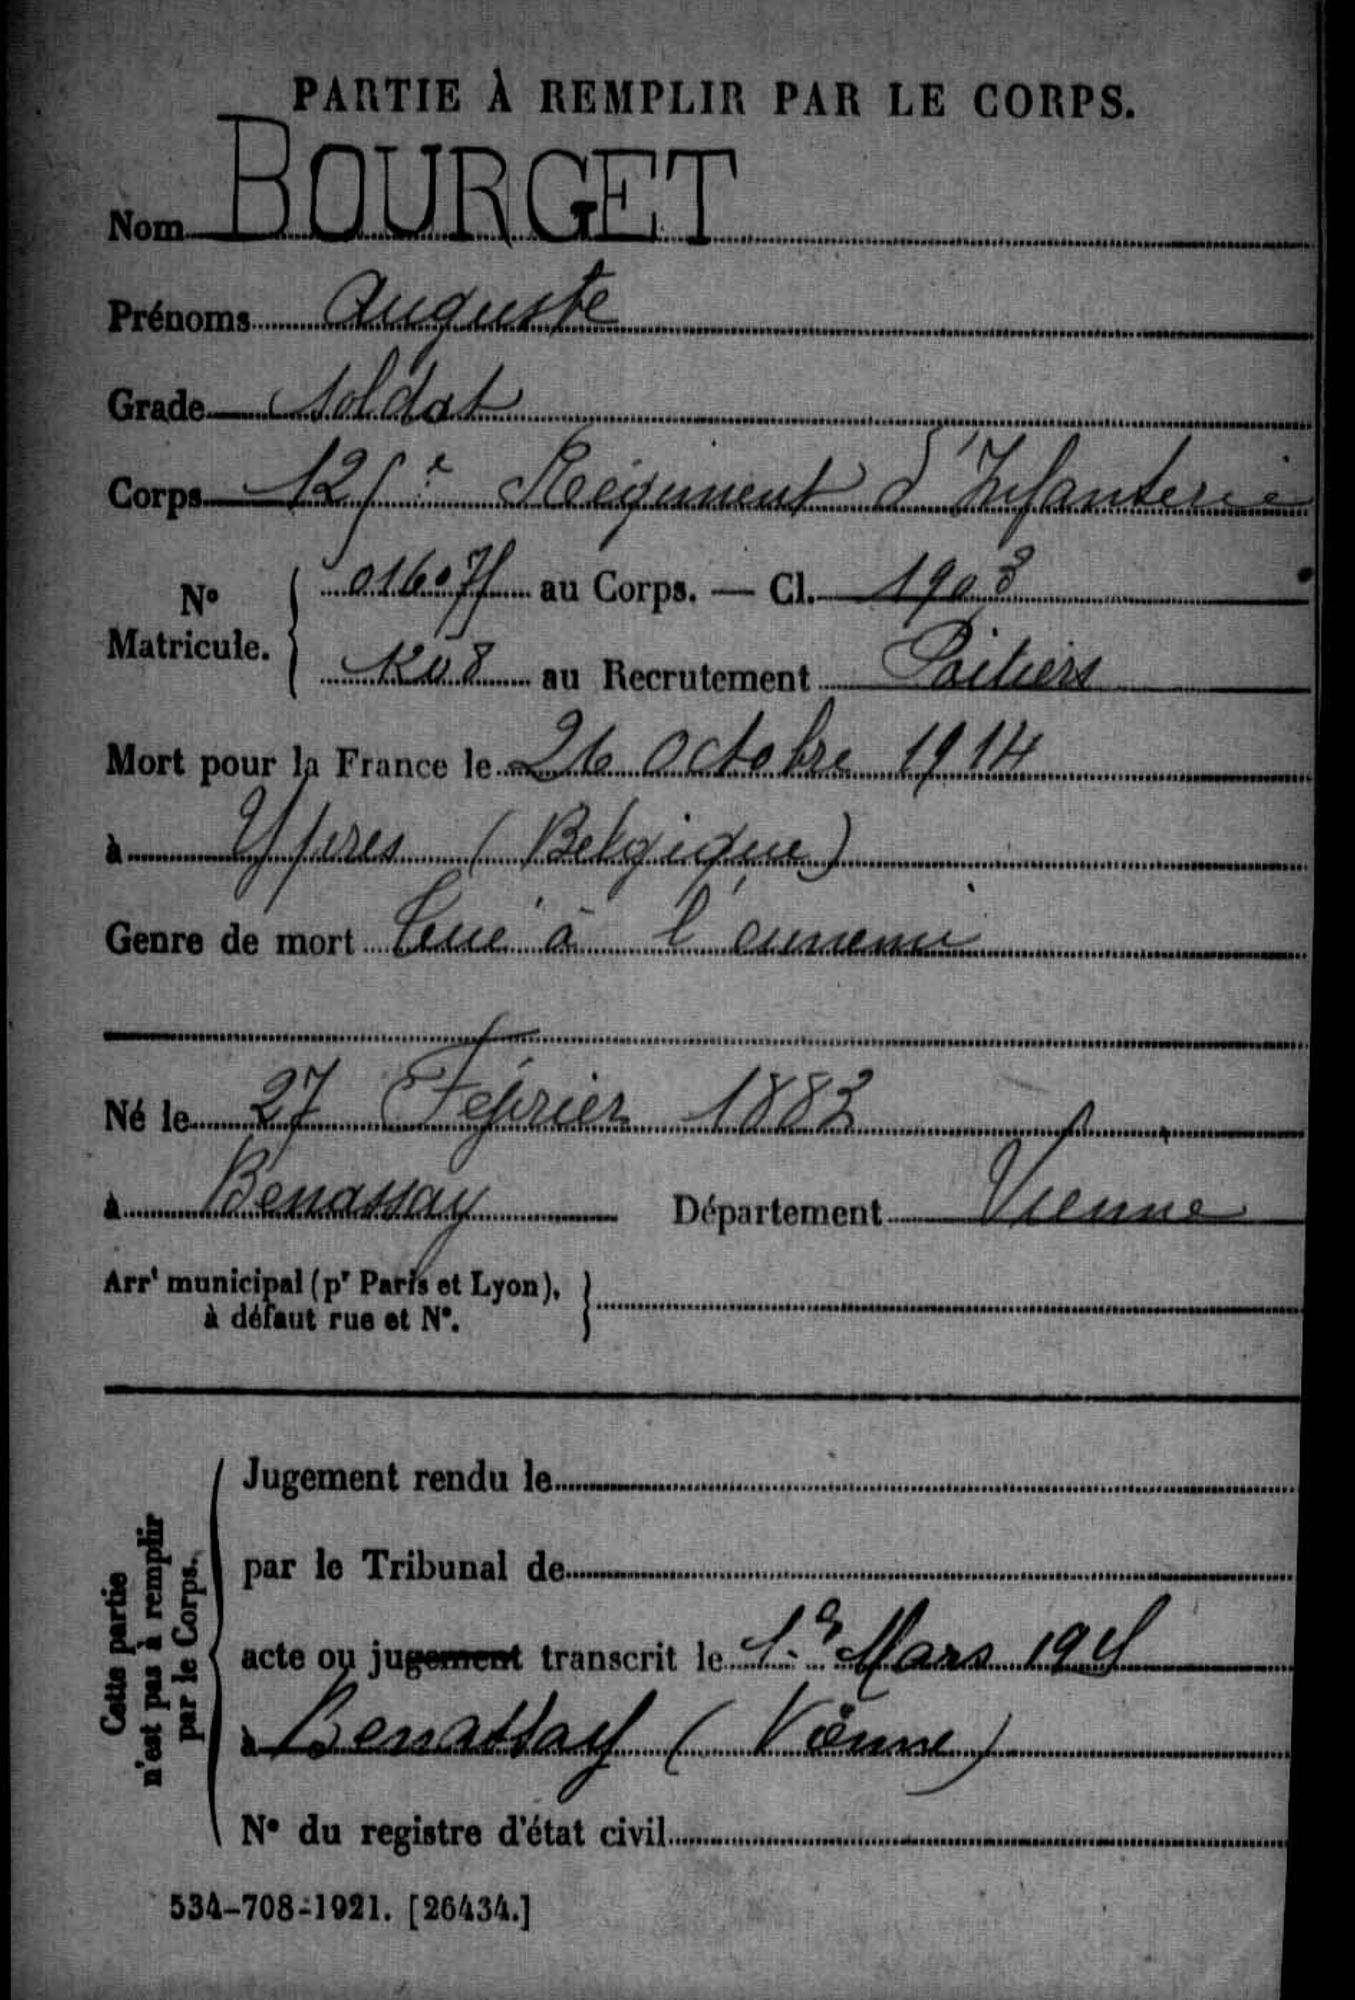 PARTIE À REMPLIR PAR LE CORPS.
Nom BOURGET
Prénoms Auguste
Grade Soldat
Corps 125e Régiment d'Infanterie
No Matricule. 016075 au Corps. — Cl. 1903
1208 au Recrutement Poitiers
Mort pour la France le 26 Octobre 1914
à Ypres (Belgique)
Genre de mort Tué à l'ennemi
Né le 27 Février 1883
à Benassay Département Vienne
Arrt municipal (pr Paris et Lyon),
à défaut rue et No.
Cette partie
n'est pas à remplir
par le Corps.
Jugement rendu le
par le Tribunal de
acte ou jugement transcrit le Mars
à Benassay (Vienne)
No du registre d'état civil
534-708-1921. [26434.]